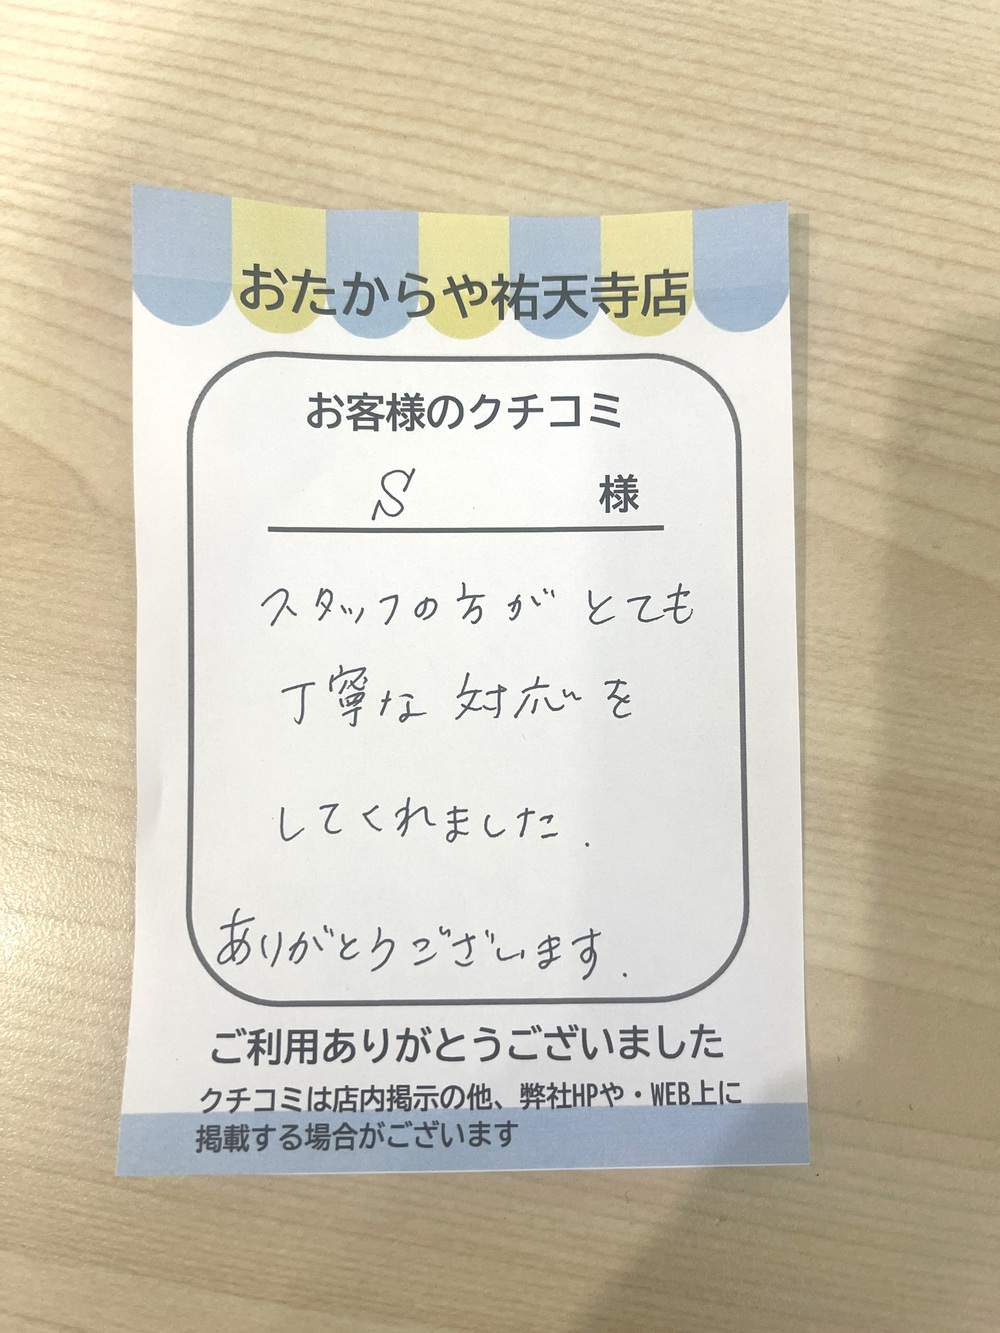 おたからや祐天寺店
お客様のクチコミ
S 様
スタッフの方が とても
丁寧な 対応を
してくれました.
ありがとうございます.
ご利用ありがとうございました
クチコミは店内掲示の他、弊社HPや・WEB上に
掲載する場合がございます